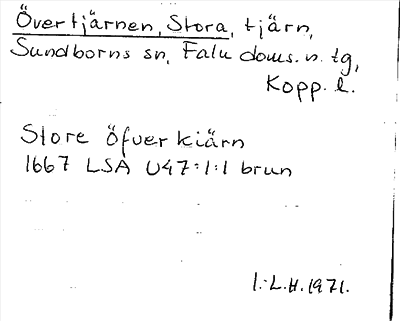 Övertjärnen, Stora, tjärn,
Sundborns sn, Falu doms. n. tg,
Kopp. l.
Store Öfverkiärn
1667 LSA U47:1:1 brun
I. L.H. 1971.